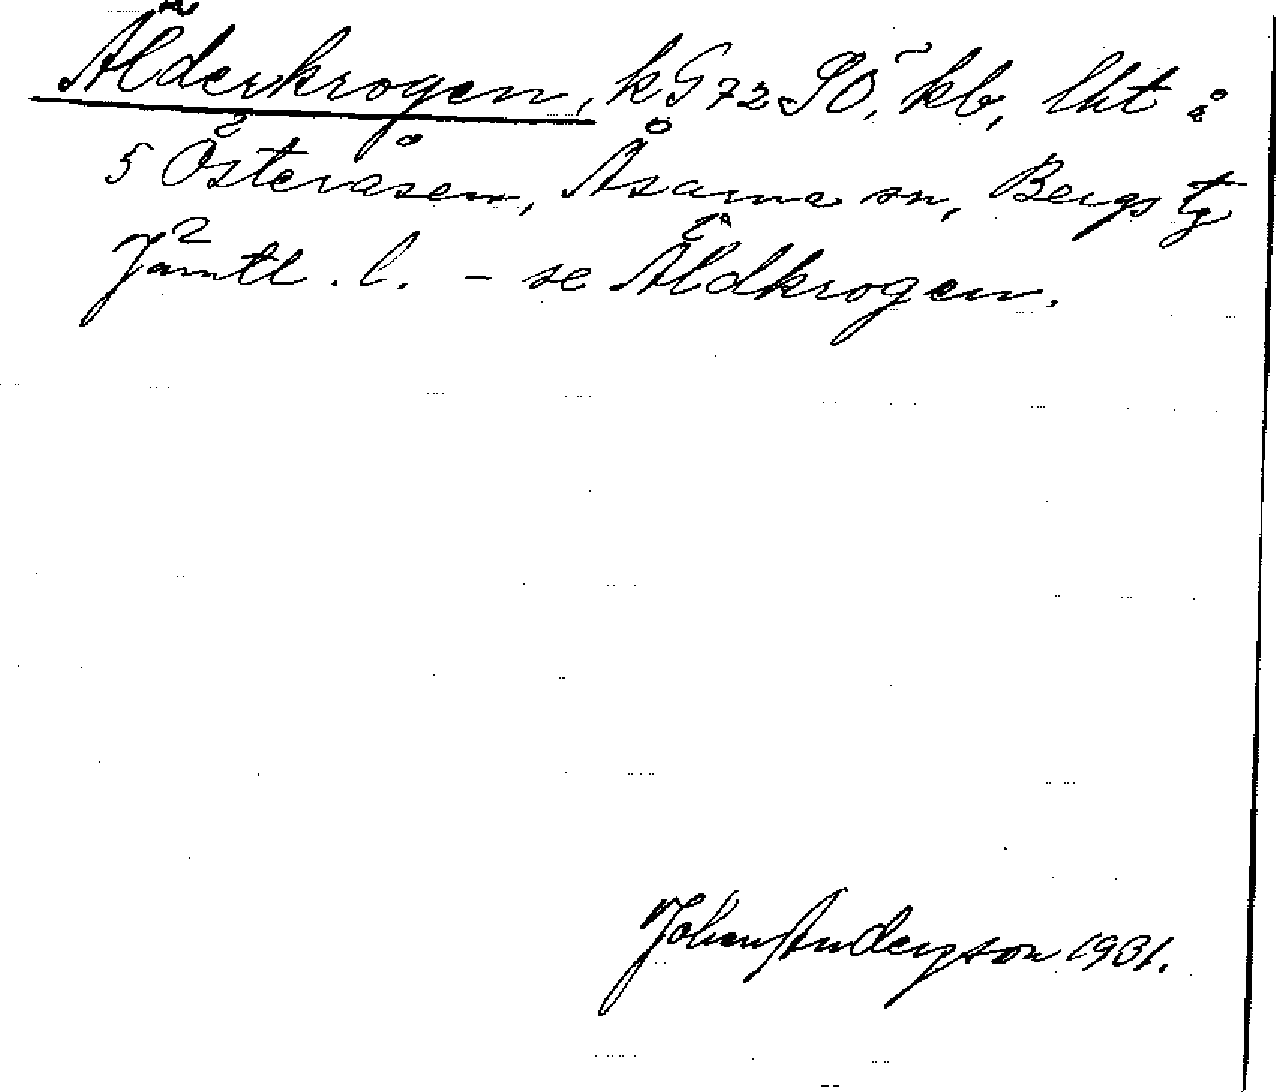 Älderkrogen, k G 72 SÖ, kb, lht å
5 Österåsen, Åsarna sn, Bergs tg
Jämtl. l. – se Äldkrogen.
Johan Anderson 1931.